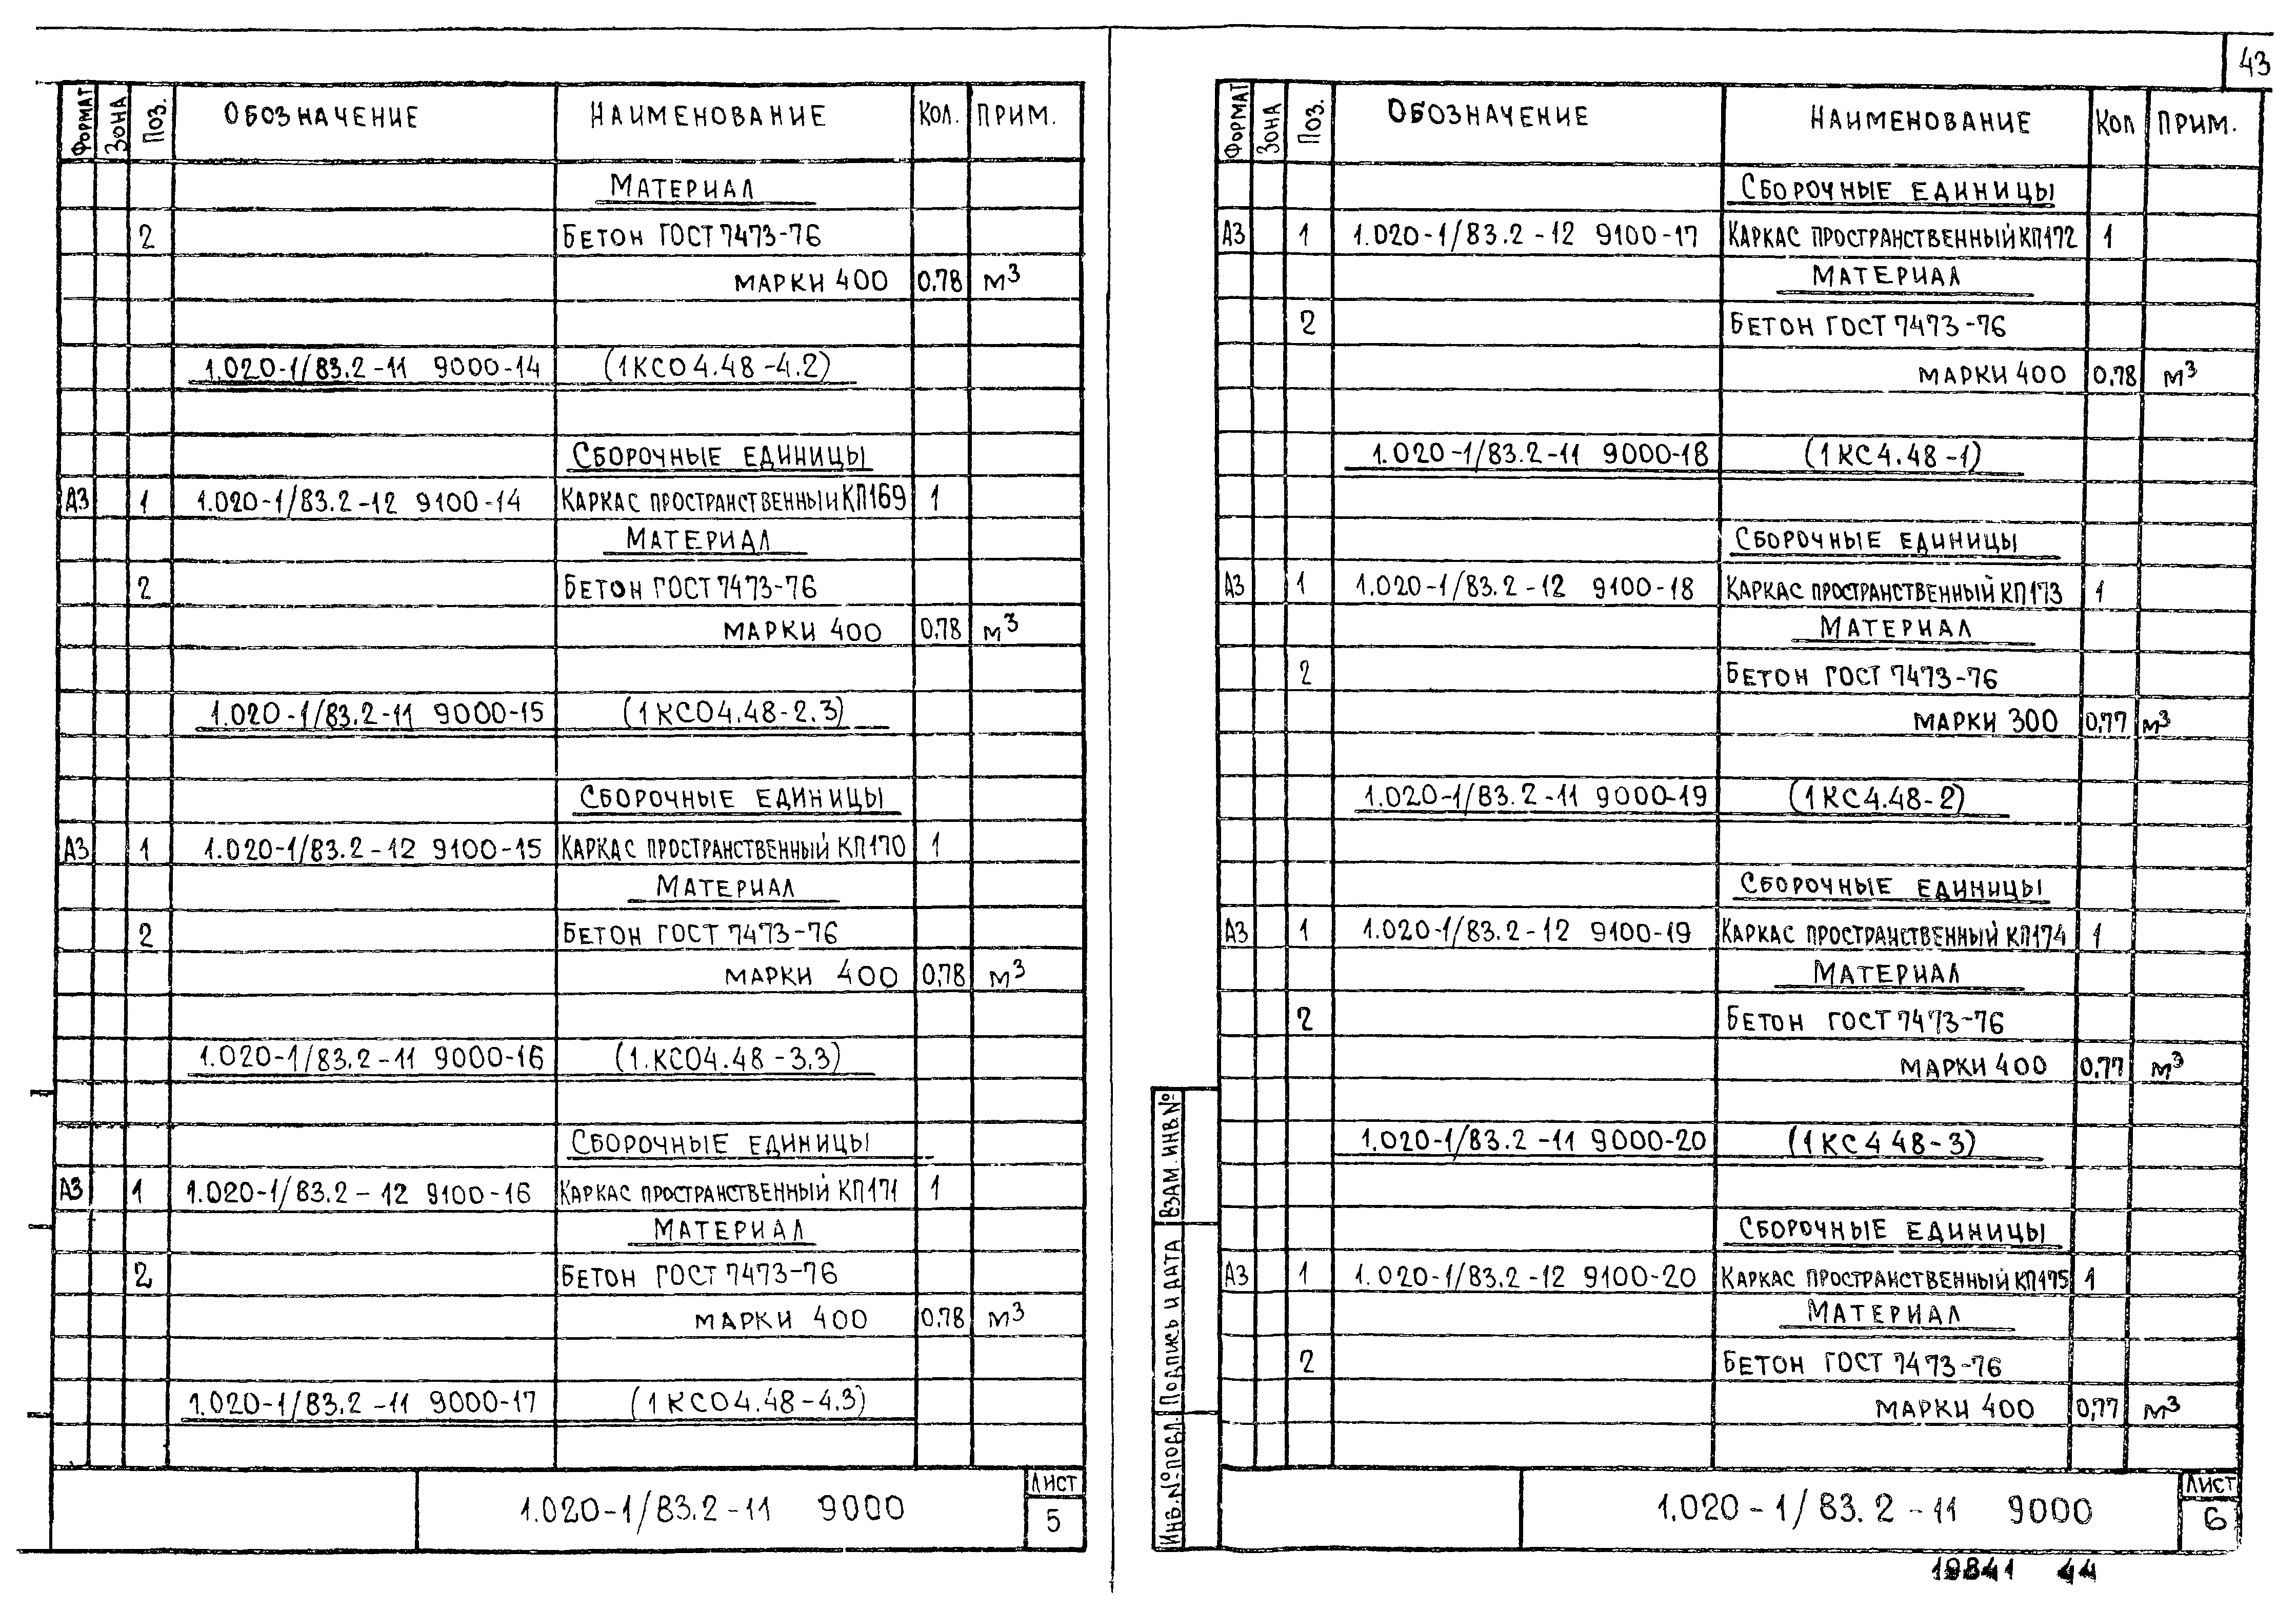 43
ФОРМАТ ЗОНА ПОЗ. ОБОЗНАЧЕНИЕ НАИМЕНОВАНИЕ КОЛ. ПРИМ.
МАТЕРИАЛ
2 БЕТОН ГОСТ 7473-76
МАРКИ 400 0.78 м³
1.020-1/83.2-11 9000-14 (1КСО4.48-4.2)
СБОРОЧНЫЕ ЕДИНИЦЫ
А3 1 1.020-1/83.2-12 9100-14 КАРКАС ПРОСТРАНСТВЕННЫЙ КП169 1
МАТЕРИАЛ
2 БЕТОН ГОСТ 7473-76
МАРКИ 400 0,78 м³
1.020-1/83.2-11 9000-15 (1КСО4.48-2.3)
СБОРОЧНЫЕ ЕДИНИЦЫ
А3 1 1.020-1/83.2-12 9100-15 КАРКАС ПРОСТРАНСТВЕННЫЙ КП170 1
МАТЕРИАЛ
2 БЕТОН ГОСТ 7473-76
МАРКИ 400 0,78 м³
1.020-1/83.2-11 9000-16 (1.КСО4.48-3.3)
СБОРОЧНЫЕ ЕДИНИЦЫ
А3 1 1.020-1/83.2-12 9100-16 КАРКАС ПРОСТРАНСТВЕННЫЙ КП171 1
МАТЕРИАЛ
2 БЕТОН ГОСТ 7473-76
МАРКИ 400 0,78 м³
1.020-1/83.2-11 9000-17 (1КСО4.48-4.3)
1.020-1/83.2-11 9000
ЛИСТ
5
ФОРМАТ ЗОНА ПОЗ. ОБОЗНАЧЕНИЕ НАИМЕНОВАНИЕ КОЛ ПРИМ.
СБОРОЧНЫЕ ЕДИНИЦЫ
А3 1 1.020-1/83.2-12 9100-17 КАРКАС ПРОСТРАНСТВЕННЫЙ КП172 1
МАТЕРИАЛ
2 БЕТОН ГОСТ 7473-76
МАРКИ 400 0,78 м³
1.020-1/83.2-11 9000-18 (1КС4.48-1)
СБОРОЧНЫЕ ЕДИНИЦЫ
А3 1 1.020-1/83.2-12 9100-18 КАРКАС ПРОСТРАНСТВЕННЫЙ КП173 1
МАТЕРИАЛ
2 БЕТОН ГОСТ 7473-76
МАРКИ 300 0,77 м³
1.020-1/83.2-11 9000-19 (1КС4.48-2)
СБОРОЧНЫЕ ЕДИНИЦЫ
А3 1 1.020-1/83.2-12 9100-19 КАРКАС ПРОСТРАНСТВЕННЫЙ КП174 1
МАТЕРИАЛ
2 БЕТОН ГОСТ 7473-76
МАРКИ 400 0,77 м³
1.020-1/83.2-11 9000-20 (1КС4 48-3)
СБОРОЧНЫЕ ЕДИНИЦЫ
А3 1 1.020-1/83.2-12 9100-20 КАРКАС ПРОСТРАНСТВЕННЫЙ КП175 1
МАТЕРИАЛ
2 БЕТОН ГОСТ 7473-76
МАРКИ 400 0,77 м³
ВЗАМ. ИНВ. №
ПОДПИСЬ И ДАТА
ИНВ. № ПОДЛ.
1.020-1/83.2-11 9000
ЛИСТ
6
19841 44